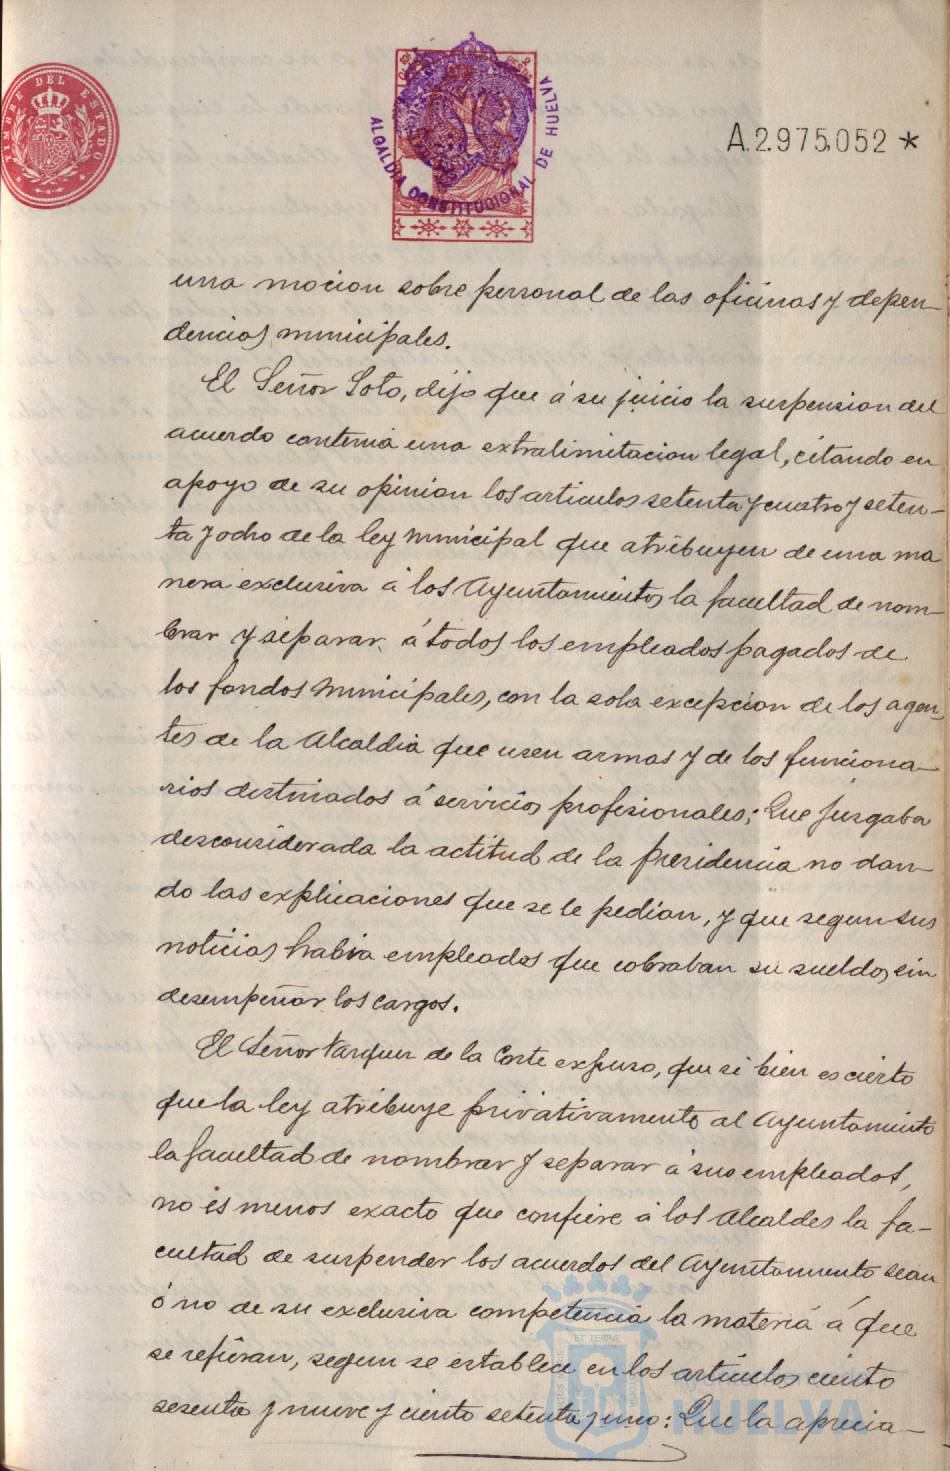 TIMBRE DEL ESTADO
ALCALDIA CONSTITUCIONAL DE HUELVA
A.2.975,052 *
una mocion sobre personal de las oficinas y depen-
dencias municipales.
El Señor Soto, dijo que á su juicio la suspension del
acuerdo contenia una extralimitacion legal, citando en
apoyo de su opinion los articulos setenta y cuatro y seten-
ta y ocho de la ley municipal que atribuyen de una ma
nera exclusiva á los Ayuntamientos la facultad de nom-
brar y separar á todos los empleados pagados de
los fondos municipales, con la sola excepcion de los agen-
tes de la Alcaldia que usen armas y de los funciona-
rios destinados á servicios profesionales; Que juzgaba
desconsiderada la actitud de la presidencia no dan-
do las explicaciones que se le pedian, y que segun sus
noticias habia empleados que cobraban su sueldo, sin
desempeñar los cargos.
El Señor Vazquez de la Corte expuso, que si bien es cierto
que la ley atribuye privativamente al Ayuntamiento
la facultad de nombrar y separar á sus empleados,
no es menos exacto que confiere á los Alcaldes la fa-
cultad de suspender los acuerdos del Ayuntamiento sean
ó no de su exclusiva competencia la materia á que
se refieran, segun se establece en los articulos ciento
sesenta y nueve y ciento setenta y uno: Que la aprecia-
HUELVA